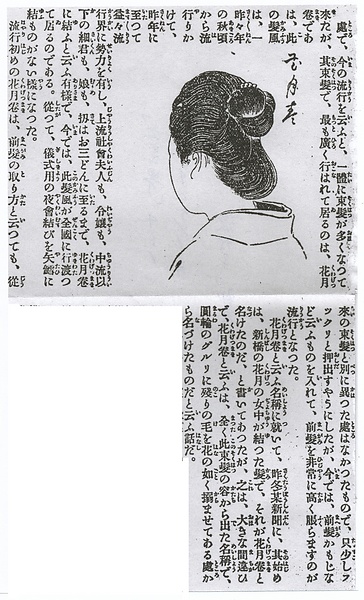 處で、今の流行を云ふと、一體に束髮が多くなつて
來たが、其束髮で、最も廣く行はれて居るのは、花月
卷であ
る、此
の髮風
は、一
昨々年
の秋頃
から流
行りか
けて、
昨年に
至つて
益々流
花月卷
行界に勢力を有し、上流社會の夫人も、令孃も、中流以
下の細君も、娘も、扨はお三どんに至るまで、花月卷
に結ふと云ふ有樣で、今では、此髮風が全國に行渡つ
て居るのである。從つて、儀式用の夜會結びを矢鱈に
結ものがない樣になつた。
流行初めの花月卷は、前髮の取り方と云つても、從
來の束髮と別に異つた處はなかつたもので、只少しフ
ツクリと押出すやうにしたが、今では、前髮かもじな
ど云ふものを入れて、前髮を非常に高く脹らますのが
流行となつた。
花月卷と云ふ名稱に就いて、昨冬某新聞に、其始め
は、新橋の花月の女中が結つた髮で、それが花月卷と
名けたのだ、と書いてあつたが、之は、大きな間違ひ
で、花月卷と云ふは、全く此束髮の容から出た名稱で、
圓輪のグルリに殘りの毛を花の如く搦ませてある處か
ら名づけたものだと云ふ話だ。